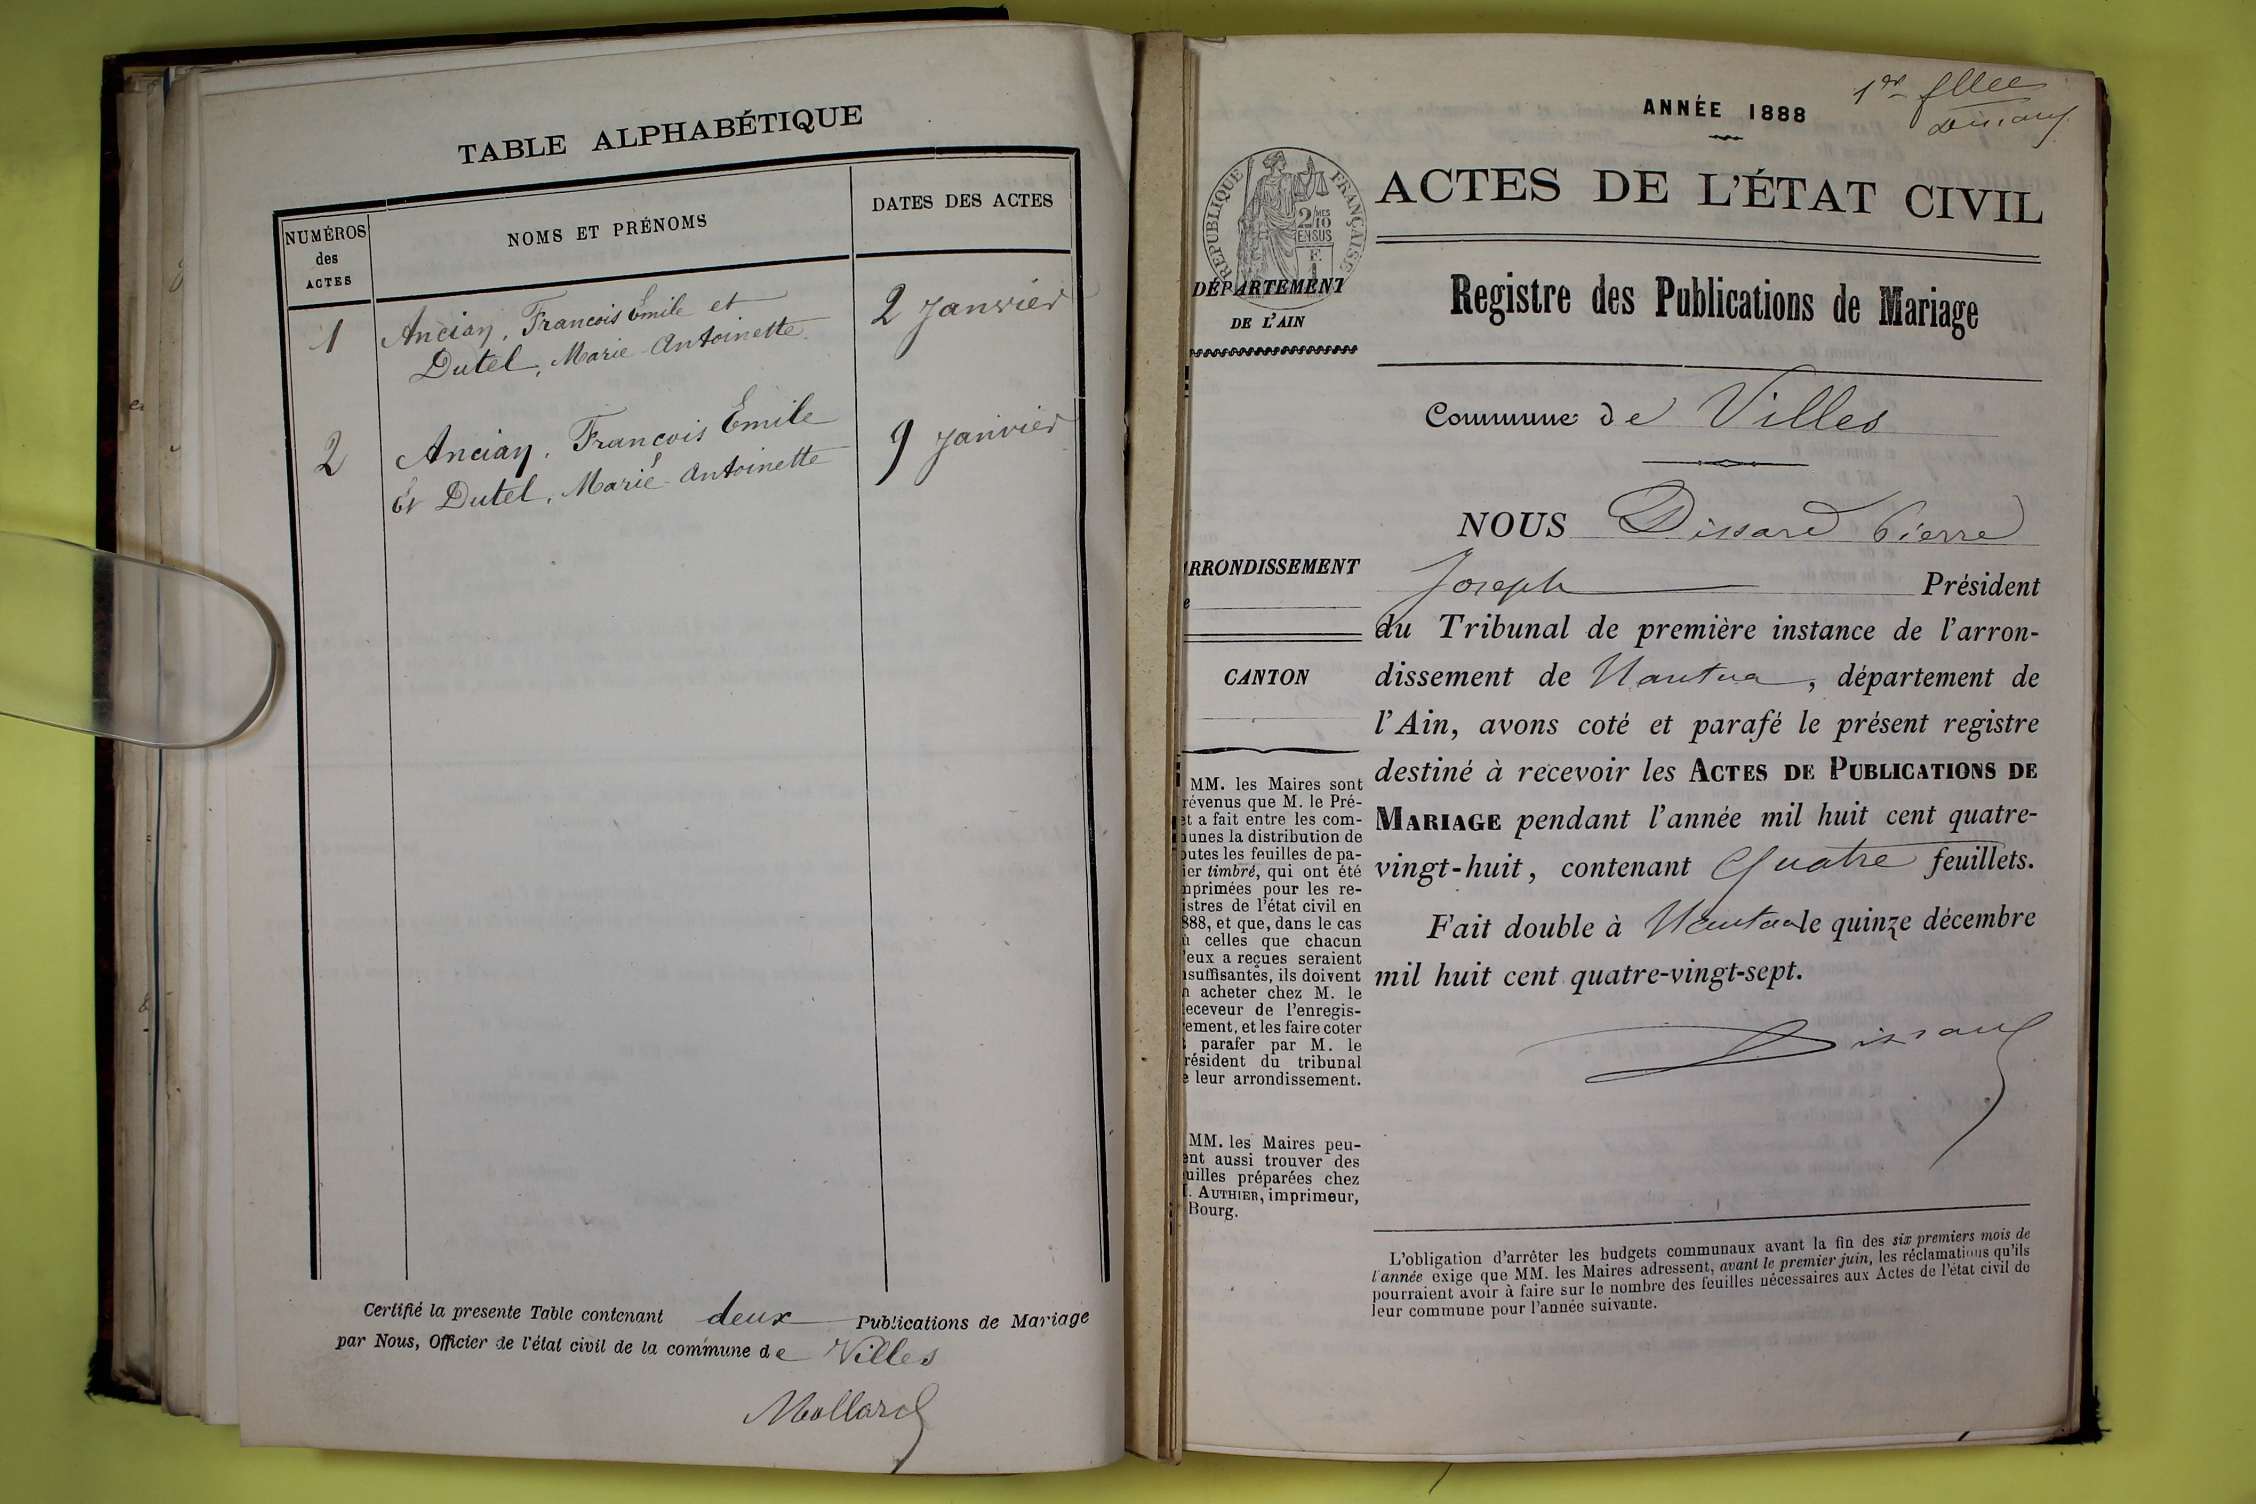 TABLE ALPHABÉTIQUE
NUMÉROS
des
ACTES
NOMS ET PRÉNOMS
DATES DES ACTES
1
Ancian, Francois Émile et
Dutel, Marie Antoinette
2 Janvier
2
Ancian, François Émile
Et Dutel, Marie Antoinette
9 Janvier
Certifié la presente Table contenant deux Publications de Mariage
par Nous, Officier de l'état civil de la commune de Villes
Mollard
1er
ANNÉE 1888
Dissard
RÉPUBLIQUE FRANÇAISE
2/10 MES
EN SUS
F
1
ACTES DE L'ÉTAT CIVIL
DÉPARTEMENT
DE L'AIN
Registre des Publications de Mariage
Commune de Villes
NOUS Dissard Pierre
Joseph Président
du Tribunal de première instance de l'arron-
dissement de Nantua, département de
l'Ain, avons coté et parafé le présent registre
destiné à recevoir les ACTES DE PUBLICATIONS DE
MARIAGE pendant l'année mil huit cent quatre-
vingt-huit, contenant Quatre feuillets.
Fait double à Nantua le quinze décembre
mil huit cent quatre-vingt-sept.
Dissard
RRONDISSEMENT
e
CANTON
MM. les Maires sont
révenus que M. le Pré-
et a fait entre les com-
unes la distribution de
outes les feuilles de pa-
ier timbré, qui ont été
mprimées pour les re-
istres de l'état civil en
888, et que, dans le cas
ù celles que chacun
'eux a reçues seraient
nsuffisantes, ils doivent
n acheter chez M. le
eceveur de l'enregis-
ement, et les faire coter
t parafer par M. le
résident du tribunal
e leur arrondissement.
MM. les Maires peu-
ent aussi trouver des
uilles préparées chez
. AUTHIER, imprimeur,
Bourg.
L'obligation d'arrêter les budgets communaux avant la fin des six premiers mois de
l'année exige que MM. les Maires adressent, avant le premier juin, les réclamations qu'ils
pourraient avoir à faire sur le nombre des feuilles nécessaires aux Actes de l'état civil de
leur commune pour l'année suivante.